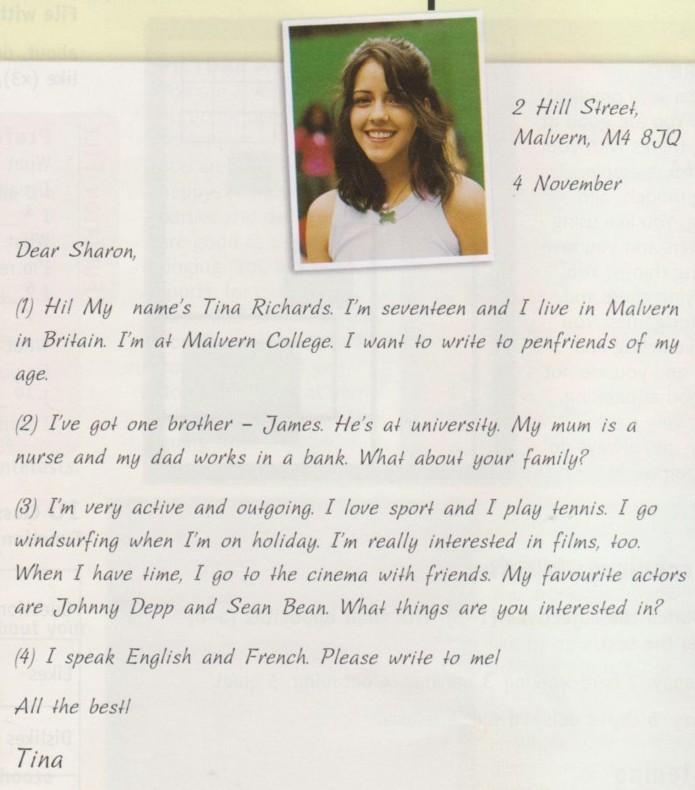 2 Hill Street,
Malvern, M4 8JQ
4 November
Dear Sharon,
(1) Hi! My name's Tina Richards. I'm seventeen and I live in Malvern
in Britain. I'm at Malvern College. I want to write to penfriends of my
age.
(2) I've got one brother – James. He's at university. My mum is a
nurse and my dad works in a bank. What about your family?
(3) I'm very active and outgoing. I love sport and I play tennis. I go
windsurfing when I'm on holiday. I'm really interested in films, too.
When I have time, I go to the cinema with friends. My favourite actors
are Johnny Depp and Sean Bean. What things are you interested in?
(4) I speak English and French. Please write to me!
All the best!
Tina